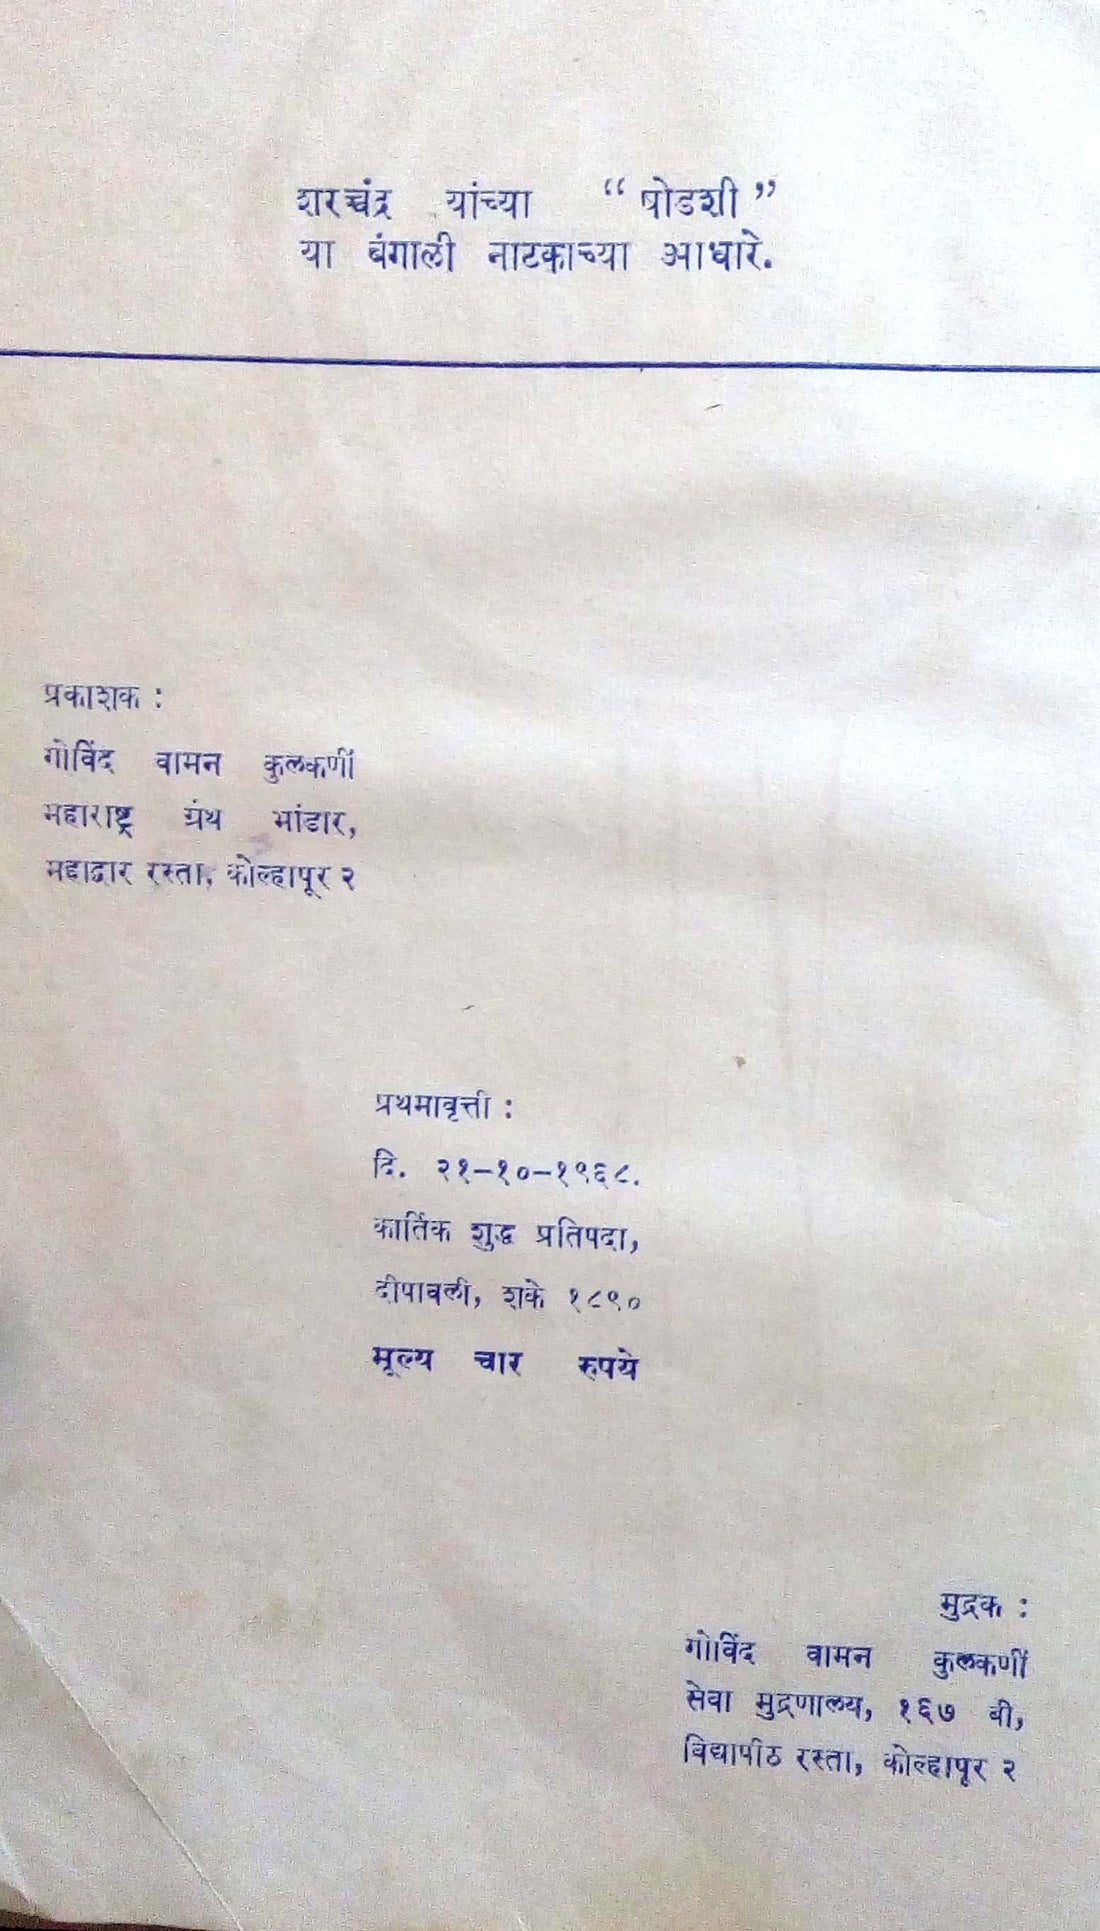 शरच्चंद्र यांच्या “षोडशी”
या बंगाली नाटकाच्या आधारे.
प्रकाशक :
गोविंद वामन कुलकर्णी
महाराष्ट्र ग्रंथ भांडार,
महाद्वार रस्ता, कोल्हापूर २
प्रथमावृत्ती :
दि. २१-१०-१९६८.
कार्तिक शुद्ध प्रतिपदा,
दीपावली, शके १८९०
मूल्य चार रुपये
मुद्रक :
गोविंद वामन कुलकर्णी
सेवा मुद्रणालय, १६७ बी,
विद्यापीठ रस्ता, कोल्हापूर २